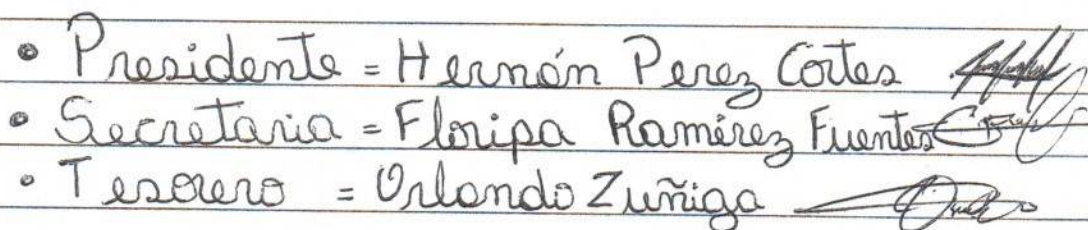 • Presidente = Hernán Perez Cortes
• Secretaria = Floripa Ramírez Fuentes
• Tesorero = Orlando Zuñiga